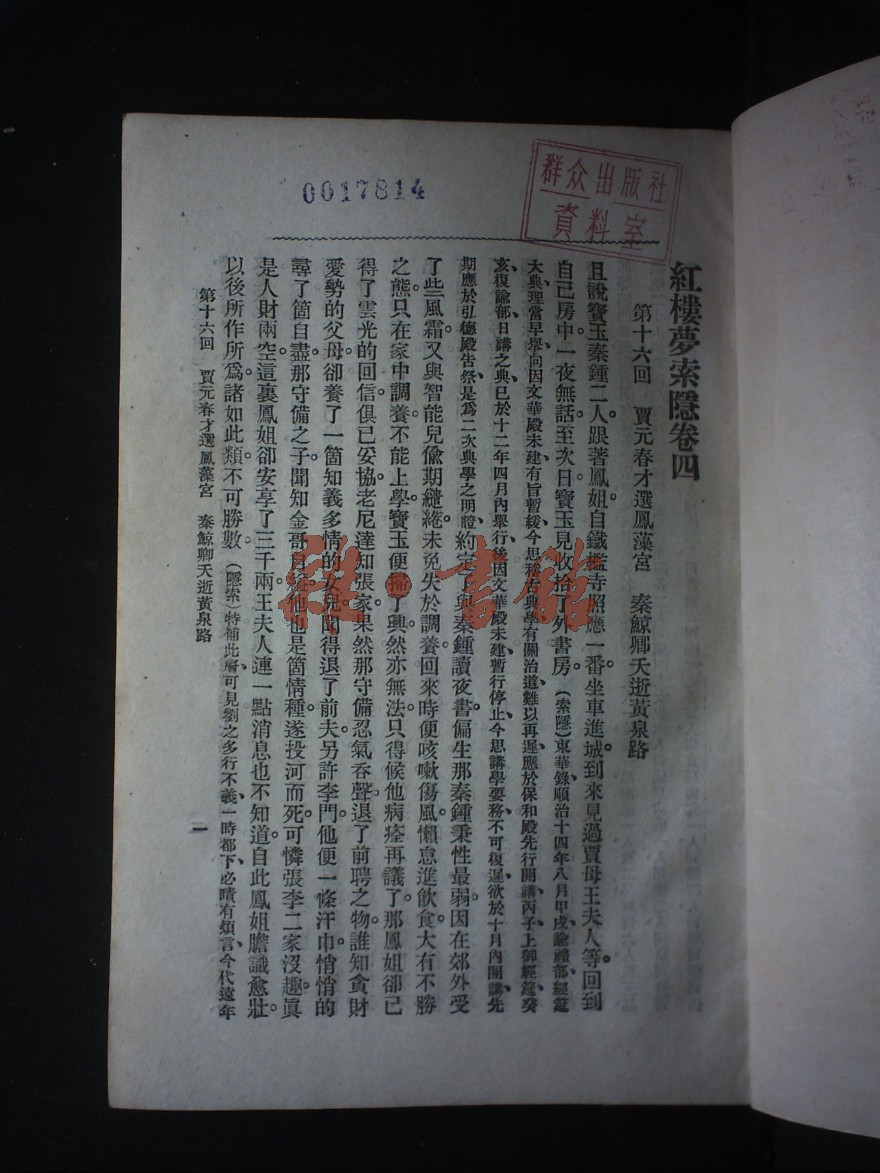 0017814
群众出版社
資料室
紅樓夢索隱卷四
第十六回　賈元春才選鳳藻宮　秦鯨卿夭逝黃泉路
且說寶玉秦鍾二人跟著鳳姐自鐵檻寺照應一番坐車進城到來見過賈母王夫人等回到
自己房中一夜無話至次日寶玉見收拾了外書房。（索隱）東華錄順治十四年八月甲戌諭禮部經筵
大典理當早舉向因文華殿未建有旨暫緩今思稽古典學有關治道難以再遲應於保和殿先行開講丙子上御經筵癸
亥復諭部日講之典已於十二年四月內舉行後因文華殿未建暫行停止今思講學要務不可復遲欲於十月內開講先
期應於弘德殿告祭是爲二次典學之明證約定了與秦鍾讀夜書偏生那秦鍾秉性最弱。因在郊外受
了些風霜又與智能兒偸期繾綣未免失於調養回來時便咳嗽傷風懶怠進飮食大有不勝
之態。只在家中調養不能上學寶玉便掃了興然亦無法只得候他病痊再議了。那鳳姐卻已
得了雲光的回信俱已妥協。老尼達知張家果然那守備忍氣吞聲。退了前聘之物。誰知貪財
愛勢的父母卻養了一箇知義多情的女兒聞得退了前夫另許李門。他便一條汗巾悄悄的
尋了箇自盡。那守備之子聞知金哥自縊他也是箇情種。遂投河而死。可憐張李二家沒趣眞
是人財兩空。這裏鳳姐卻安享了三千兩王夫人連一點消息也不知道。自此鳳姐膽識愈壯。
以後所作所爲諸如此類。不可勝數。（隱索）特補此層可見劉之多行不義一時都下必嘖有煩言今代遠年
第十六回　賈元春才選鳳藻宮　秦鯨卿夭逝黃泉路
一